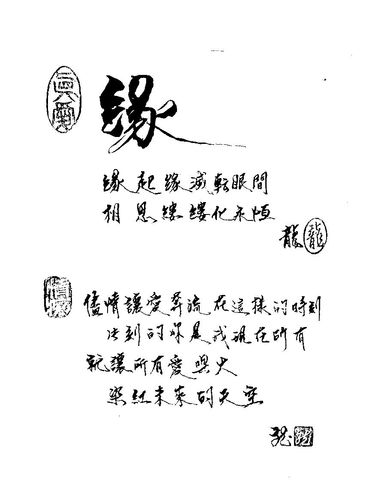 緣
緣起緣滅轉眼間
相思縷縷化永恆
龍
龍
儘情讓愛奔流在這樣的時刻
決到的你是我現在所有
就讓所有愛與火
染紅未來的天空